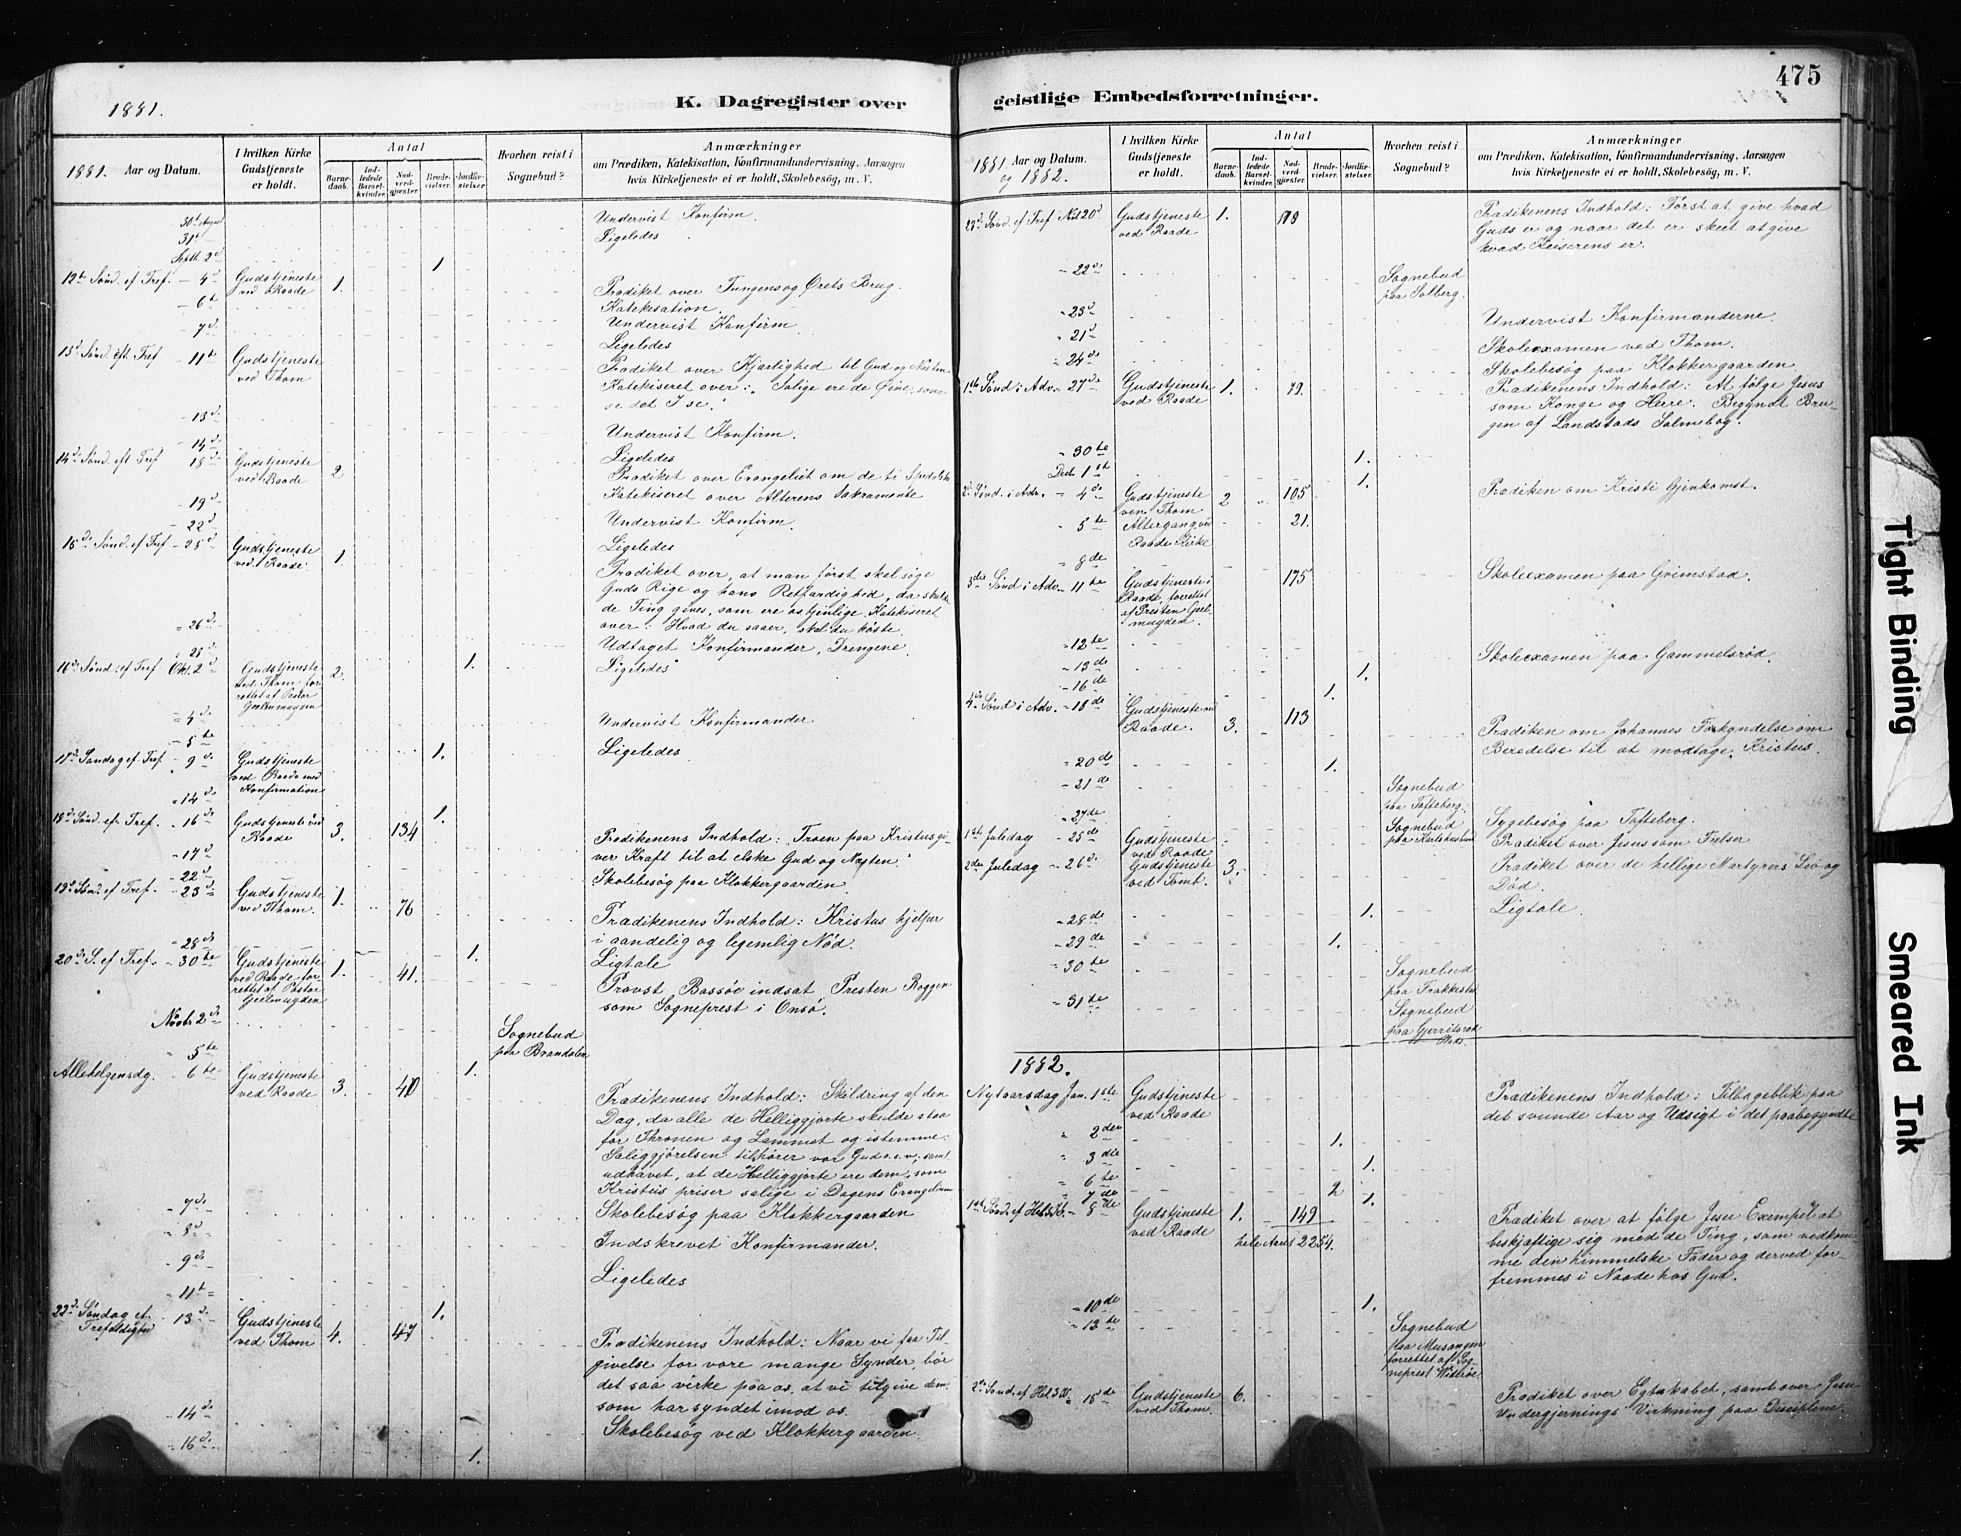 475
1881.
K. Dagregister over
geistlige Embedsforretninger.
1881. Aar og Datum.
I hvilken Kirke Gudstjeneste er holdt.
Antal
Barne-daab.
Ind-ledede Barsel-kvinder.
Nad-verd-gjæster.
Brude-vielser.
Jordfæ-stelser.
Hvorhen reist i Sognebud?
Anmærkninger
om Prædiken, Katekisation, Konfirmandundervisning, Aarsagen
hvis Kirketjeneste ei er holdt, Skolebesøg, m. V.
30t August Undervist Konfirm.
31t Ligeledes
Septb. 2d 1
12te Sønd. ef. Tref. - 4d Gudstjeneste ved Raade 1. Prædiket over Tungens og Ørets Brug.
Katekisation.
- 6t Undervist Konfirm.
- 7d Ligeledes
13d Sønd. eft Tref - 11t Gudstjeneste ved Thom Prædiket over Kjærlighed til Gud og Næsten
Katekiseret over: "Salige ere de Øine, som
se det I se."
- 13d Undervist Konfirm.
- 14d Ligeledes
14d Sønd. eft Tref 18d Gudstjeneste ved Raade 2 Prædiket over Evangeliet om de ti Spedalsk
Katekiseret over Alterens Sakramente
- 19d Undervist Konfirm.
- 22d Ligeledes
15de Sønd. ef. Tref - 25d Gudstjeneste ved Raade. 1. Prædiket over, at man først skal søge
Guds Rige og hans Retfærdighed, da skulde
de Ting gives, som ere
Katekiseret
over: Hvad du saaer, skal du høste.
- 26d Udtaget Konfirmander, Drengene.
28d Ligeledes 1.
16d Sønd. ef Tref Okt. 2d Gudstjeneste ved Thom forrettet af Pastor Geelmuyden 2.
- 4d Undervist Konfirmander
- 5te Ligeledes.
17d Søndag ef. Tref - 9d Gudstjeneste ved Raade med Konfirmation 1.
- 14d 1.
18d Sønd. ef. Tref. - 16d Gudstjeneste ved Raade 3. 134 Prædikenens Indhold: Troen paa Kristus gi-
ver Kraft til at elske Gud og Næsten.
- 17d Skolebesøg paa Klokkergaarden.
- 22d
19d Sønd. ef Tref. - 23d Gudstjeneste ved Thom. 1. 76 Prædikenens Indhold: Kristus hjelper
i aandelig og legemlig Nød.
- 28d Ligtale 1.
20d S. ef Tref. - 30te Gudstjeneste ved Raade forrettet af Pastor Geelmuyden 1. 41. Provst Bassøe indsat Presten Roggen
som Sogneprest i Onsø.
Novbr. 2d Sognebud paa Brandalen
- 5te 1.
Allehelgensdg. - 6te Gudstjeneste ved Raade 3. 40 Prædikenens Indhold: Skildring af den
Dag, da alle de Helliggjorte skulde staa
for Thronen og Lammet og istemme:
Saliggjørelsen tilhører vor Gud o.s.v; samt
udhævet, at de Helliggjorte ere dem, som
Kristus priser salige i Dagens Evangelium
- 7d Skolebesøg paa Klokkergaarden
- 8d Indskrevet Konfirmander.
- 9d Ligeledes
- 11t 1.
22d Søndag ef. Trefoldighed - 13d Gudstjeneste ved Thom 4. 47 Prædikenens Indhold: Naar vi faa Til
givelse for vore mange Synder, bør
det saa virke paa os, at vi tilgive dem,
som har syndet imod os.
- 14d Skolebesøg ved Klokkergaarden
- 16d 1.
1881 og 1882. Aar og Datum.
I hvilken Kirke Gudstjeneste er holdt.
Antal
Barne-daab.
Ind-ledede Barsel-kvinder.
Nad-verd-gjæster.
Brude-vielser.
Jordfæ-stelser.
Hvorhen reist i Sognebud?
Anmærkninger
om Prædiken, Katekisation, Konfirmandundervisning, Aarsagen
hvis Kirketjeneste ei er holdt, Skolebesøg, m. V.
23d Sønd. ef Tref. Nov 20d Gudstjeneste ved Raade 1. Prædikenens Indhold: Først at give hvad
Guds er og naar det er skeet at give
hvad Keiserens er.
- 22d Sognebud paa Solberg.
- 23d Undervist Konfirmanderne.
- 21d Skoleexamen ved Thom.
- 24de Skolebesøg paa Klokkergaarden
1ste Sønd. i Adv. - 27de Gudstjeneste ved Raade 1. 79. Prædikenens Indhold: At følge Jesus
som Konge og Herre. Begyndt Bru-
gen af Landstads Salmebog.
- 30te 1.
Decb. 1st 1.
2d Sønd. i Adv. - 4de Gudstjeneste ved Thom 2 105 Prædiken om Kristi Gjenkomst.
- 5te Altergang ved Raade Kirke 21.
- 8de Skoleexamen paa Grimstad.
3die Sønd i Adv. - 11te Gudstjeneste i Raade, forrettet af Presten Geelmuyden. 175
- 12te Skoleexamen paa Gammelsrød.
- 13de 1.
- 16de 1.
4d Sønd i Adv. - 18de Gudstjeneste ved Raade. 3. 113 Prædiken om Johannes Forkyndelse om
Beredelse til at modtage Kristus.
- 20de 1.
- 21de Sognebud paa Tofteberg.
- 24de Sognebud paa Karlshus Sygebesøg paa Tofteberg.
1ste Juledag - 25de Gudstjeneste ved Raade Prædiket over Jesus som Frelser
2den Juledag - 26d Gudstjeneste ved Tomb. 3. Prædiket over de hellige Martyrers Liv og
Død.
- 28de 1. Ligtale
- 29de 1.
- 30te Sognebud paa
- 31te Sognebud paa
1882.
Nytaarsdag Jan. 1ste Gudstjeneste ved Raade Prædikenens Indhold: Tilbageblik paa
det svunde Aar og Udsigt i det paabegyndte
" 2den 1.
" 3die 1.
" 6te 2
" 7de 1.
1ste Sønd. ef Hel.3K. - 8de Gudstjeneste ved Raade 1. 149 Prædiket over at følge Jesu Exempel at
hele Aaret 2254. beskjæftige sig med de Ting, som vedkom-
me den himmelske Fader og derved for-
fremmes i Naade hos Gud.
- 10de 1.
- 13te Sognebud paa Musangen forrettet af Sogneprest
2d Sønd. ef Hel.3K. - 15de Gudstjeneste ved Thom. 6. Prædiket over Egteskabet, samt over Jesu
Undergjernings Virkning paa Disciplene.
Tight Binding
Smeared Ink